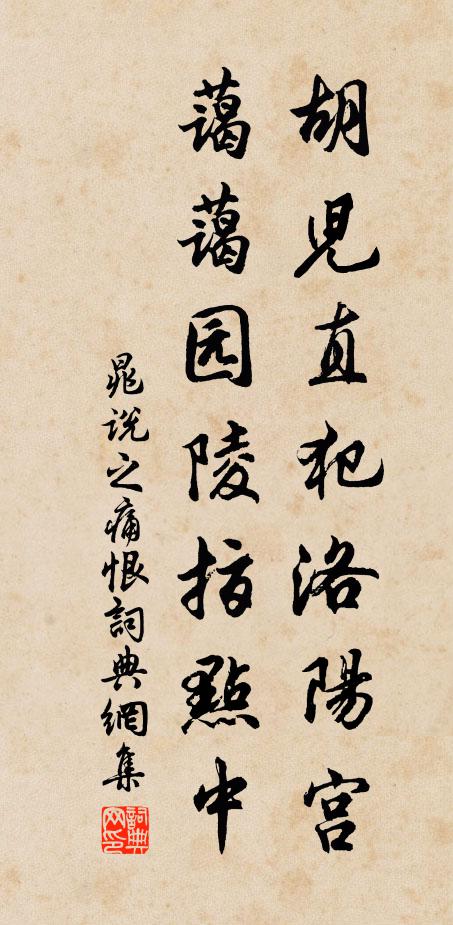 胡児直犯洛陽宮
藹藹园陵指點中
晁說之痛恨詞典網集
詞典网印